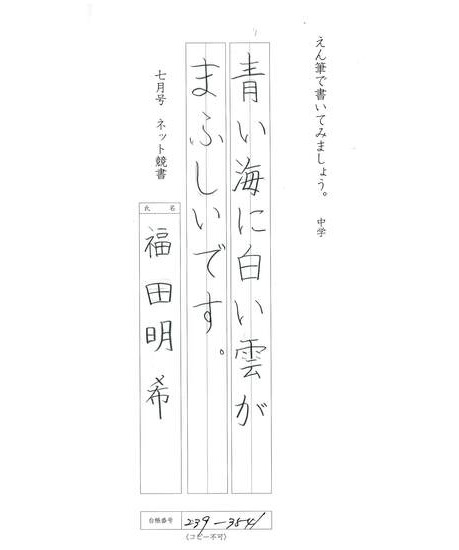 えん筆で書いてみましょう。 中学
青い海に白い雲が
まふしいです。
七月号 ネット競書
氏名
福田明希
台帳番号 239-3541
(コピー不可)